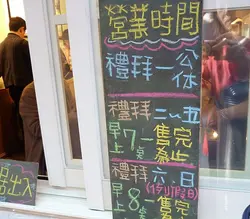 營業時間
禮拜一公休
禮拜二~五
早上7~售完為止
禮拜六、日
(例假日)
早上8~售完
出入